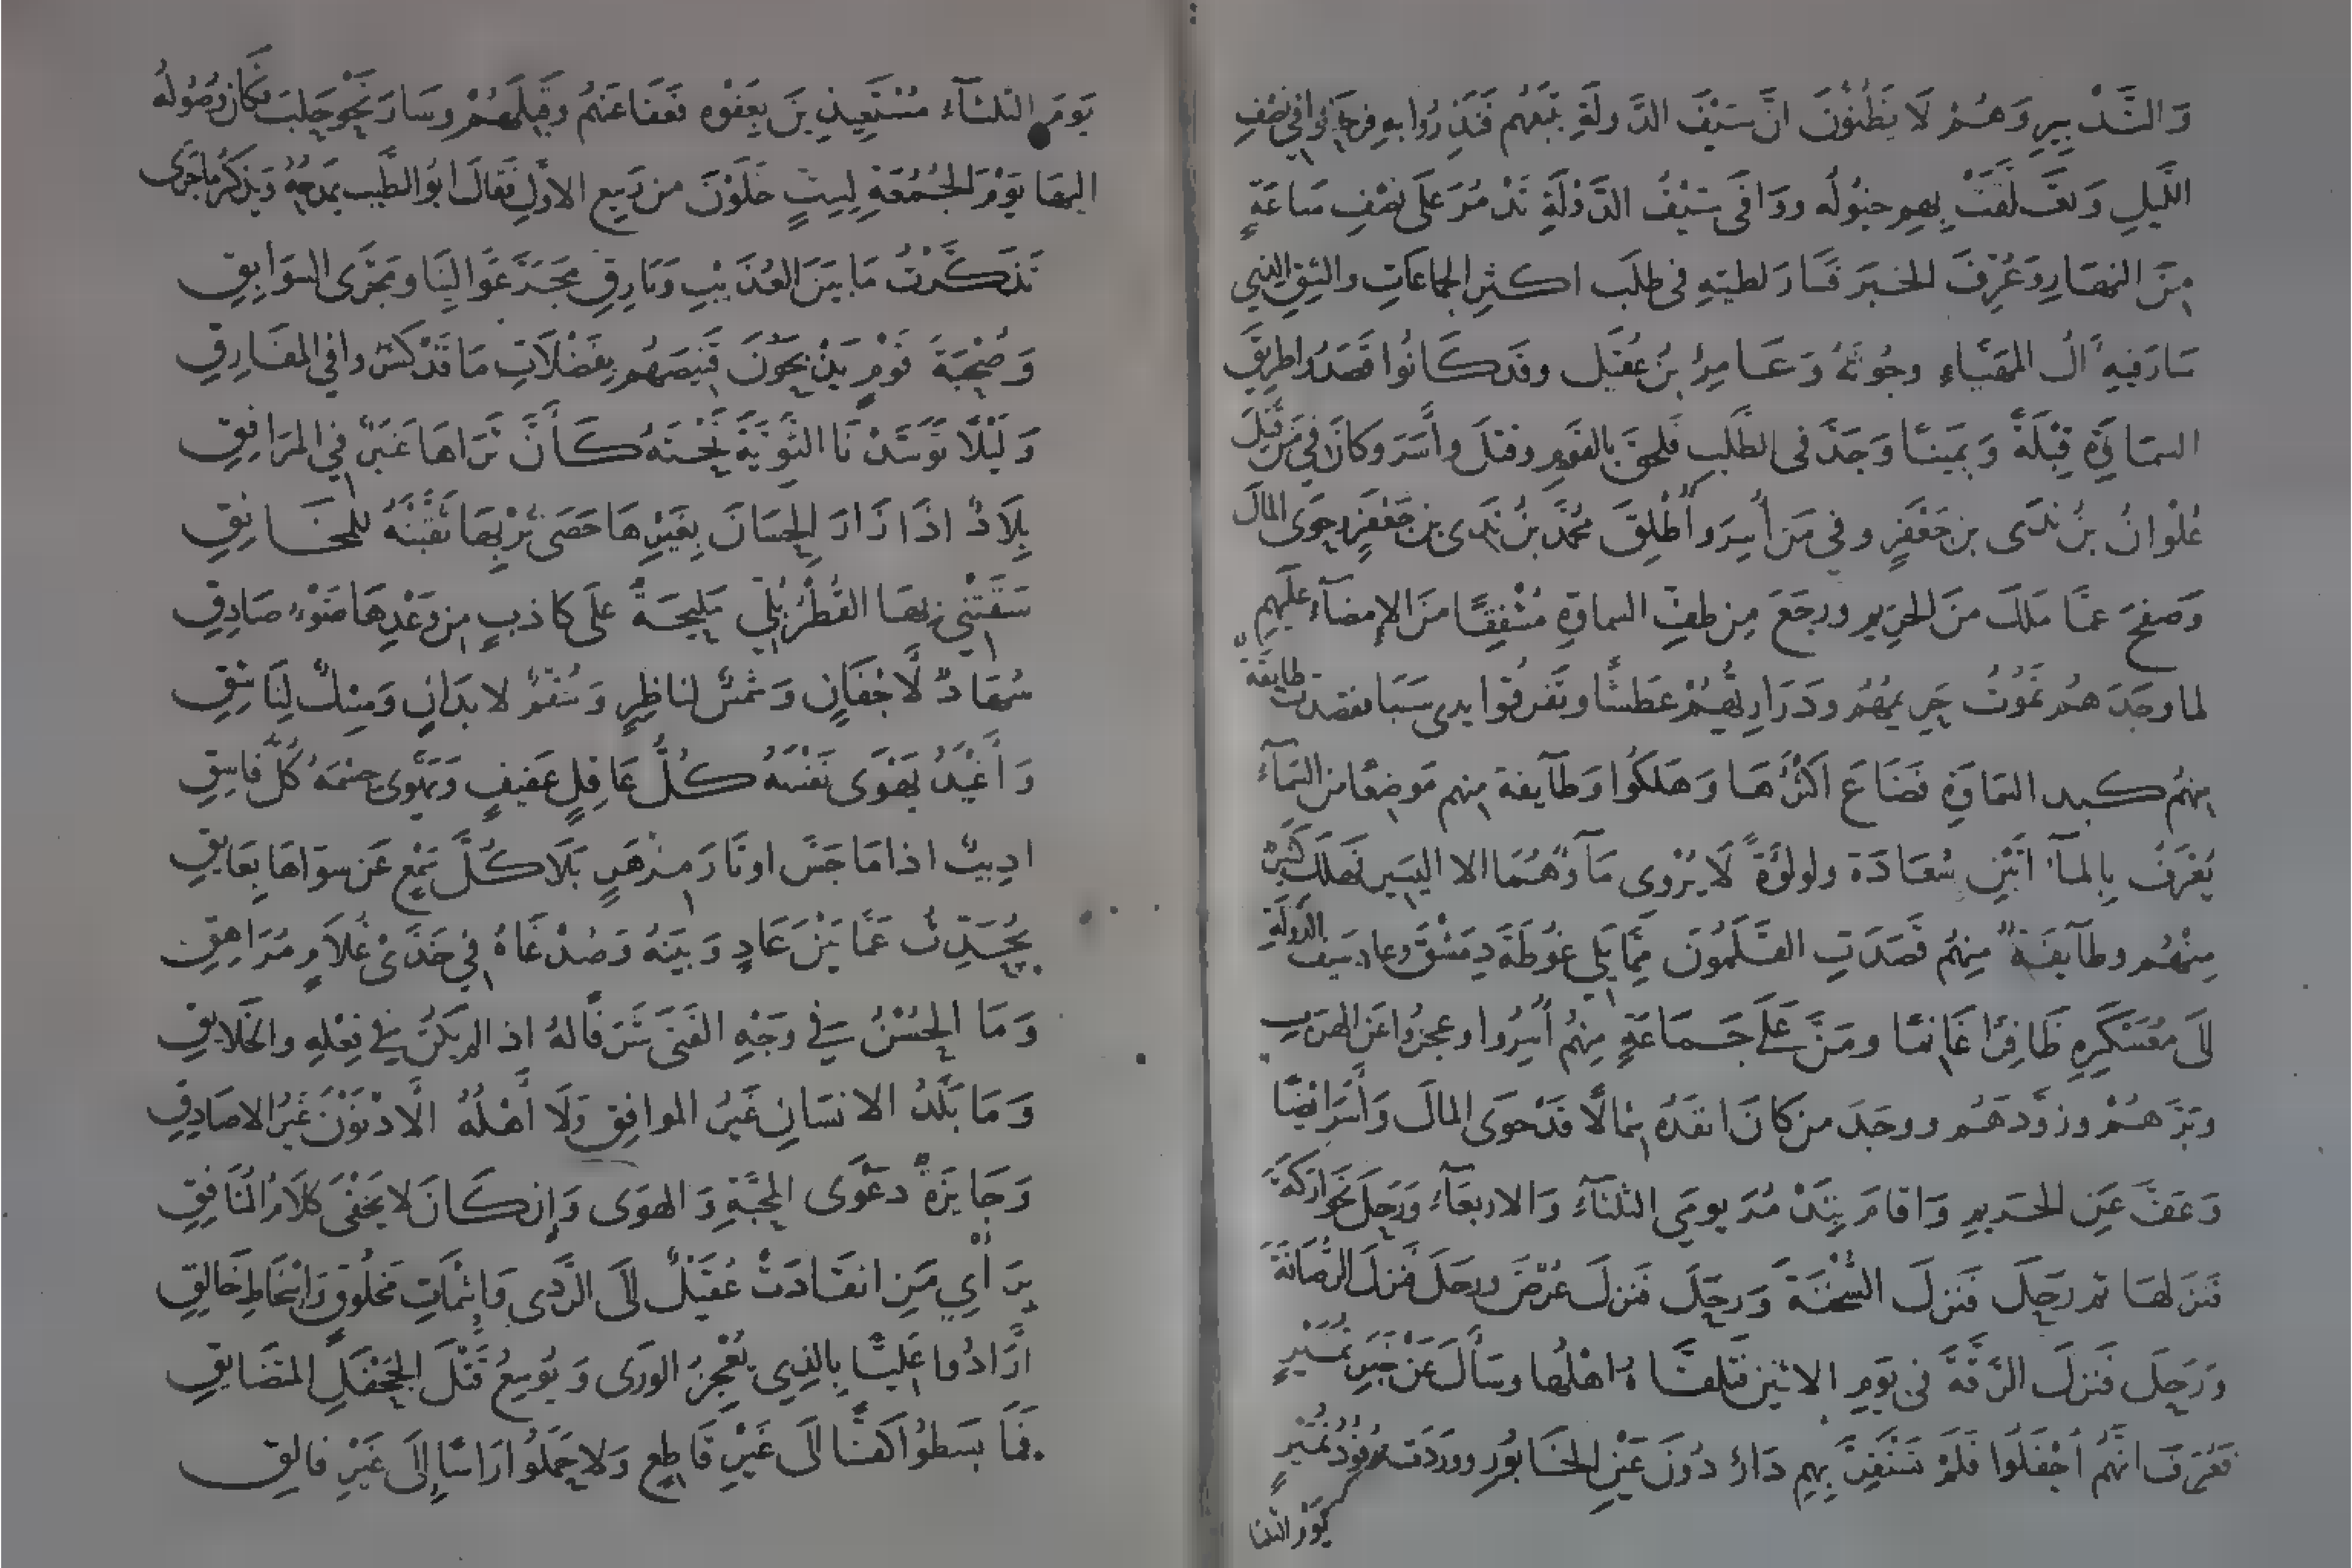 وَالتَّدْبِيرِ وَهُمْ لَا يَظُنُّونَ انَّ سَيْفَ الدَّولَةِ يَتبَعُهُم فَنَذِرُوا بهِ فرحَلُوا في نِصْفِ
اللَّيلِ وَتَلَفَّفَتْ بِهِم خيُولُه ووَافَى سَيْفُ الدَّوْلَةِ تَدْمُرَ عَلَى نِصْفِ سَاعَةٍ
مِنَ النهَارِ وَعُرِّفَ الخبَرَ فَسَارَ لطيتِهِ فى طلَب اكثرِ الجماعَاتِ والشِقِ الذي
سَارَ فيهِ آلُ المهَيَّاءِ وحُوثَةُ وَعَامِرُ بنُ عُقَيل وقَد كَانُوا قصَدُوا طريقَ
السمَاوَةِ قِبْلَةً وَيَمينًا وَجَدَّ فى الطَلَبِ فلحِقَ بالقَومِ وقتلَ وأَسَرَ وكَانَ في مَن قُتِلَ
عُلْوَانُ بنُ نَدَى بن جَعْفَرٍ وفي مَن أُسِرَ وأُطْلِقَ مُحمَّدُ بنُ نَدَى بن جَعْفَرٍ وحَوَى المالَ
وَصَفَحَ عمَّا مَلَكَ منَ الحرِيمِ ورجَعَ مِن طفِّ السماوَةِ مُشْفِقًا منَ الإمضَآءِ علَيهِم
لما وجَدَهُم تَمُوتُ حَرِيمُهُم وذَرَارِيُّهُمْ عَطَشًا وتَفرقُوا يدى سَبَا فقصدت طايفَةٌ
مِنهُم كبد السَمَاوَةِ فضَاعَ اكثَرُهَا وَهَلكُوا وَطَآيفة مِنهم مَوضِعًا من السَمآءِ
يُعْرَفُ بِالمآءَيْنِ سُعَادَة ولولُؤَةً لَا يُرْوى مَآؤهُمَا الا اليَسِير فهلَكَ كثيرٌ
مِنْهُم وطآيفَةٌ مِنهُم قَصَدَتِ القَلَمُونَ مِمَّا يَلي غُوطَةَ دِمَشْقَ وعاد سَيف الدَّولَةِ
إلَى مُعَسْكَرِهِ ظَافِرًا غَانمًا ومَنَّ عَلَى جَمَاعَةٍ مِنهُم أُسِرُوا وعَجزُوا عَن الهرَب
وَبَرَّهُمْ وزوَّدَهُم ووجَدَ من كَانَ انفَذَهُ شِمالًا قَدْ حَوَى المالَ وَأَسَرَ ايْضًا
وَعَفَّ عَنِ الحَرِيمِ وَاقامَ بِتَدْمُرَ يومَي الثلثآءِ وَالاربعَآءِ وَرَحَلَ نحوَ اركَةَ
فنزلهَا ثم رَحَلَ فَنزلَ السُّخْنَةَ وَرحَلَ فَنزلَ عُرْضَ ورحَلَ فنزلَ الرُّصَافَةَ
وَرَحَلَ فَنزلَ الرَّقَّةَ في يَومِ الاثنين فتلقَّاهُ اهْلُها وسَألَ عَنْ خَبَرِ نُمَيْرٍ
فعُرِّفَ انَّهُم اجْفَلُوا فَلَمْ تَسْتَقِرَّ بِهِم دَارٌ دُونَ عَيْنِ الخَابُورِ ووردَت وُفُودُ نُمَيْرٍ
يَوْمَ الثلثا
يَومَ الثلثآءِ مُسْتَعِيذِينَ بَعَفْوِه فَعَفَا عَنهُم وقَبِلَهُمْ وسَارَ نحْوَ حَلبَ فكَانَ وصُولُهُ
اليهَا يَوْمَ الجُمُعَةِ لِسِتٍّ خَلَوْنَ من رَبيعِ الاوَّلِ فقَالَ ابُو الطَّيب يمدحُهُ وَيذكرُ ما جَرَى
تَذَكَّرْتُ مَا بينَ العُذَيْبِ وَبَارِقِ مَجَرَّ عَوَالِينَا وَمَجْرَى السوَابِقِ
وَصُحْبَةَ قَومٍ يَذْبَحُونَ قَنِيصَهُم بِفَضْلَاتِ مَا قَدْ كَسَّروا في المفَارِقِ
وَلَيْلًا تَوَسَّدْنَا الثَّوِيَّةَ تَحْتَهُ كَأنَّ ثَرَاهَا عَنبَرٌ في المرَافِقِ
بِلَادٌ اذَا زَارَ الحِسَانَ بِغَيْرِهَا حَصَى تُرْبِهَا ثقَّبْنَهُ للمخَانِقِ
سَقَتْنِي بِهَا القُطْرُبُلِّيَّ مَلِيحَةٌ علَى كاذبٍ مِن وَعْدِهَا ضَوْءُ صَادِقِ
سُهَادٌ لِّأَجْفَانٍ وَشَمسٌ لناظِرٍ وَسُقمٌ لابدَانٍ وَمِسكٌ لِنَاشِقِ
وَأَغْيَدُ يَهْوَى نَفْسَهُ كُلُّ عَاقِلٍ عَفيفٍ وَيَهْوَى جِسْمَهُ كُلُّ فاسِقِ
ادِيبٌ اذا مَا جَسَّ اوتَارَ مِزْهَرٍ بَلَا كُلَّ سَمْعٍ عَن سوَاهَا بِعَايقِ
يُحَدِّثُ عَمَّا بَيْنَ عَادٍ وَبَينَهُ وَصُدْغَاهُ في خَدَّيْ غُلَامٍ مُرَاهِقِ
وَمَا الحُسْنُ في وَجْهِ الفَتَى شَرَفًا لهُ اذا لم يَكُنْ في فِعْلِهِ والخَلَايقِ
وَمَا بَلَدُ الانسَانِ غَيرُ الموافِقِ وَلَا أَهْلُهُ الَّادْنَوْنَ غَيْرُ الاصَادِقِ
وَجَايزَةٌ دَعْوَى المَحَبَّةِ وَالهوَى وَإن كَانَ لا يَخفَى كلَامُ المُنَافِقِ
بِرَأْيِ مَنِ انقَادَتْ عُقَيْلٌ إلَى الرَّدَى وَإشْمَاتِ مَخلُوقٍ وَإسْخَاطِ خَالِقِ
أرَادُوا عَلِيًّا بِالذِي يُعْجِزُ الورَى وَيُوسِعُ قَتْلَ الجَحْفَلِ المتضَايقِ
فَمَا بسَطُوا كفًّا إلَى غَيْرِ قَاطِعٍ وَلا حَمَلُوا رَاسًا إلَى غَيْرِ فالِقِ